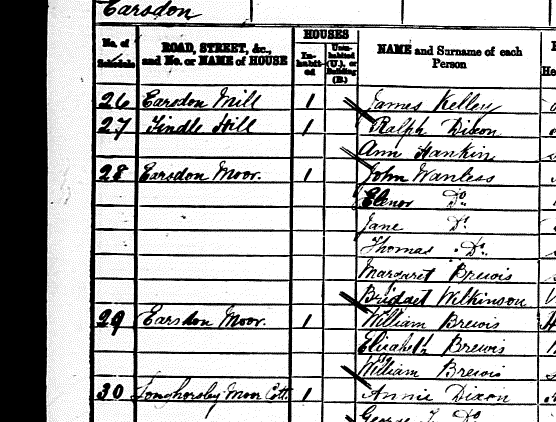 Earsdon
No. of Schedule
ROAD, STREET, &c., and No. or NAME of HOUSE
HOUSES
In-habit-ed
Unin-habited (U.), or Building (B.)
NAME and Surname of each Person
26 Earsdon Mill 1 James Kelley
27 Tindle Hill 1 Ralph Dixon
Ann Hankin
28 Earsdon Moor. 1 John Wanless
Elenor Do.
Jane Do.
Thomas Do.
Margaret Brewis
Bridget Wilkinson
29 Earsdon Moor. 1 William Brewis
Elizabeth Brewis
William Brewis
30 Longhorsley Moor Cott. 1 Annie Dixon
George Do.